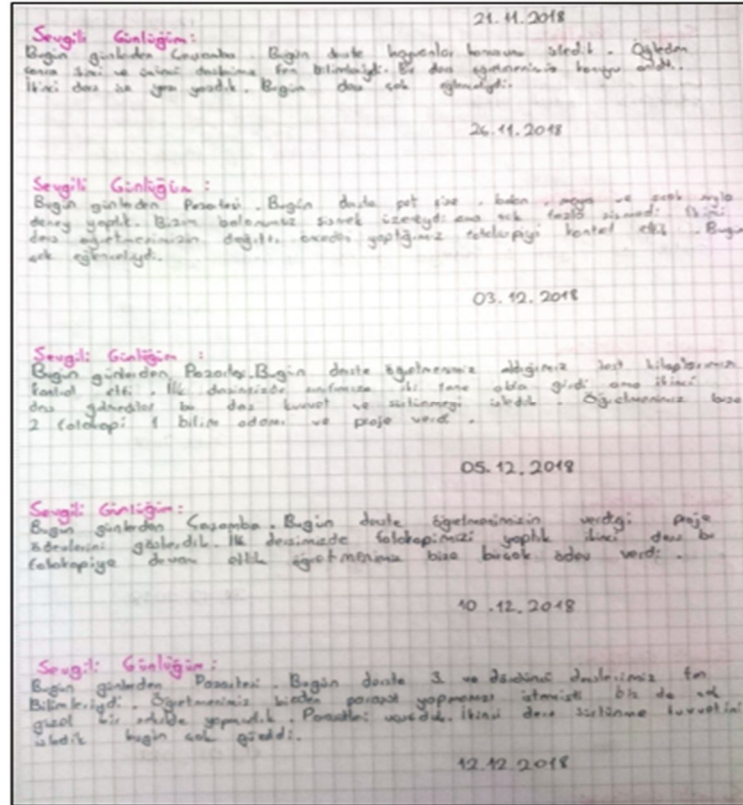 21.11.2018
Sevgili Günlüğüm:
Bugün günlerden Çarşamba. Bugün derste hayvanlar konusunu işledik. Öğleden
sonra ikinci ve üçüncü fen bilimleriydi. Bir ders öğretmenimiz
İkinci ders yazı yazdık. Bugün ders çok eğlenceliydi.
26.11.2018
Sevgili Günlüğüm:
Bugün günlerden Pazartesi. Bugün derste pet şişe, balon, maya ve sıcak suyla
deney yaptık. Bizim balonumuz şişmek üzereydi ama çok fazla şişmedi. İkinci
ders öğretmenimizin önceden yaptığımız fotokopiyi kontrol etti. Bugün
çok eğlenceliydi.
03.12.2018
Sevgili Günlüğüm:
Bugün günlerden Pazartesi. Bugün derste öğretmenimiz aldığımız test kitaplarımızı
kontrol etti. İlk dersimizde sınıfımıza iki tane abla girdi ama ikinci
ders bu ders kuvvet ve sürtünmeyi işledik. Öğretmenimiz bize
2 fotokopi 1 bilim adamı ve proje verdi.
05.12.2018
Sevgili Günlüğüm:
Bugün günlerden Çarşamba. Bugün derste öğretmenimizin verdiği proje
ödevlerini gösterdik. İlk dersimizde fotokopimizi yaptık ikinci ders bu
fotokopiye devam ettik öğretmenimiz bize birçok ödev verdi.
10.12.2018
Sevgili Günlüğüm:
Bugün günlerden Pazartesi. Bugün derste 3. ve dördüncü derslerimiz fen
Bilimleriydi. Öğretmenimiz bizden paraşüt yapmamızı istemişti biz de çok
güzel bir şekilde yapmıştık. İkinci ders sürtünme kuvvetini
işledik bugün çok güzeldi.
12.12.2018